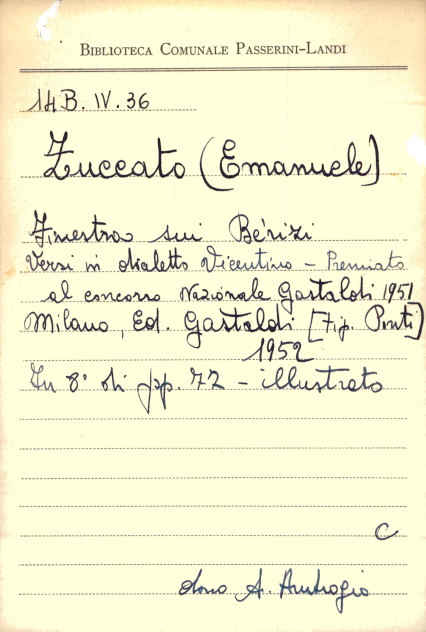 BIBLIOTECA COMUNALE PASSERINI-LANDI
14B.IV.36
Zuccato (Emanuele)
Finestra sui Bérizi
Versi in dialetto Vicentino - Premiato
al concorso Nazionale Gastaldi 1951
Milano, Ed. Gastaldi [Tip. Ponti]
1952
In 8° di pp. 72 - illustrato
C
dono A. Ambrogio